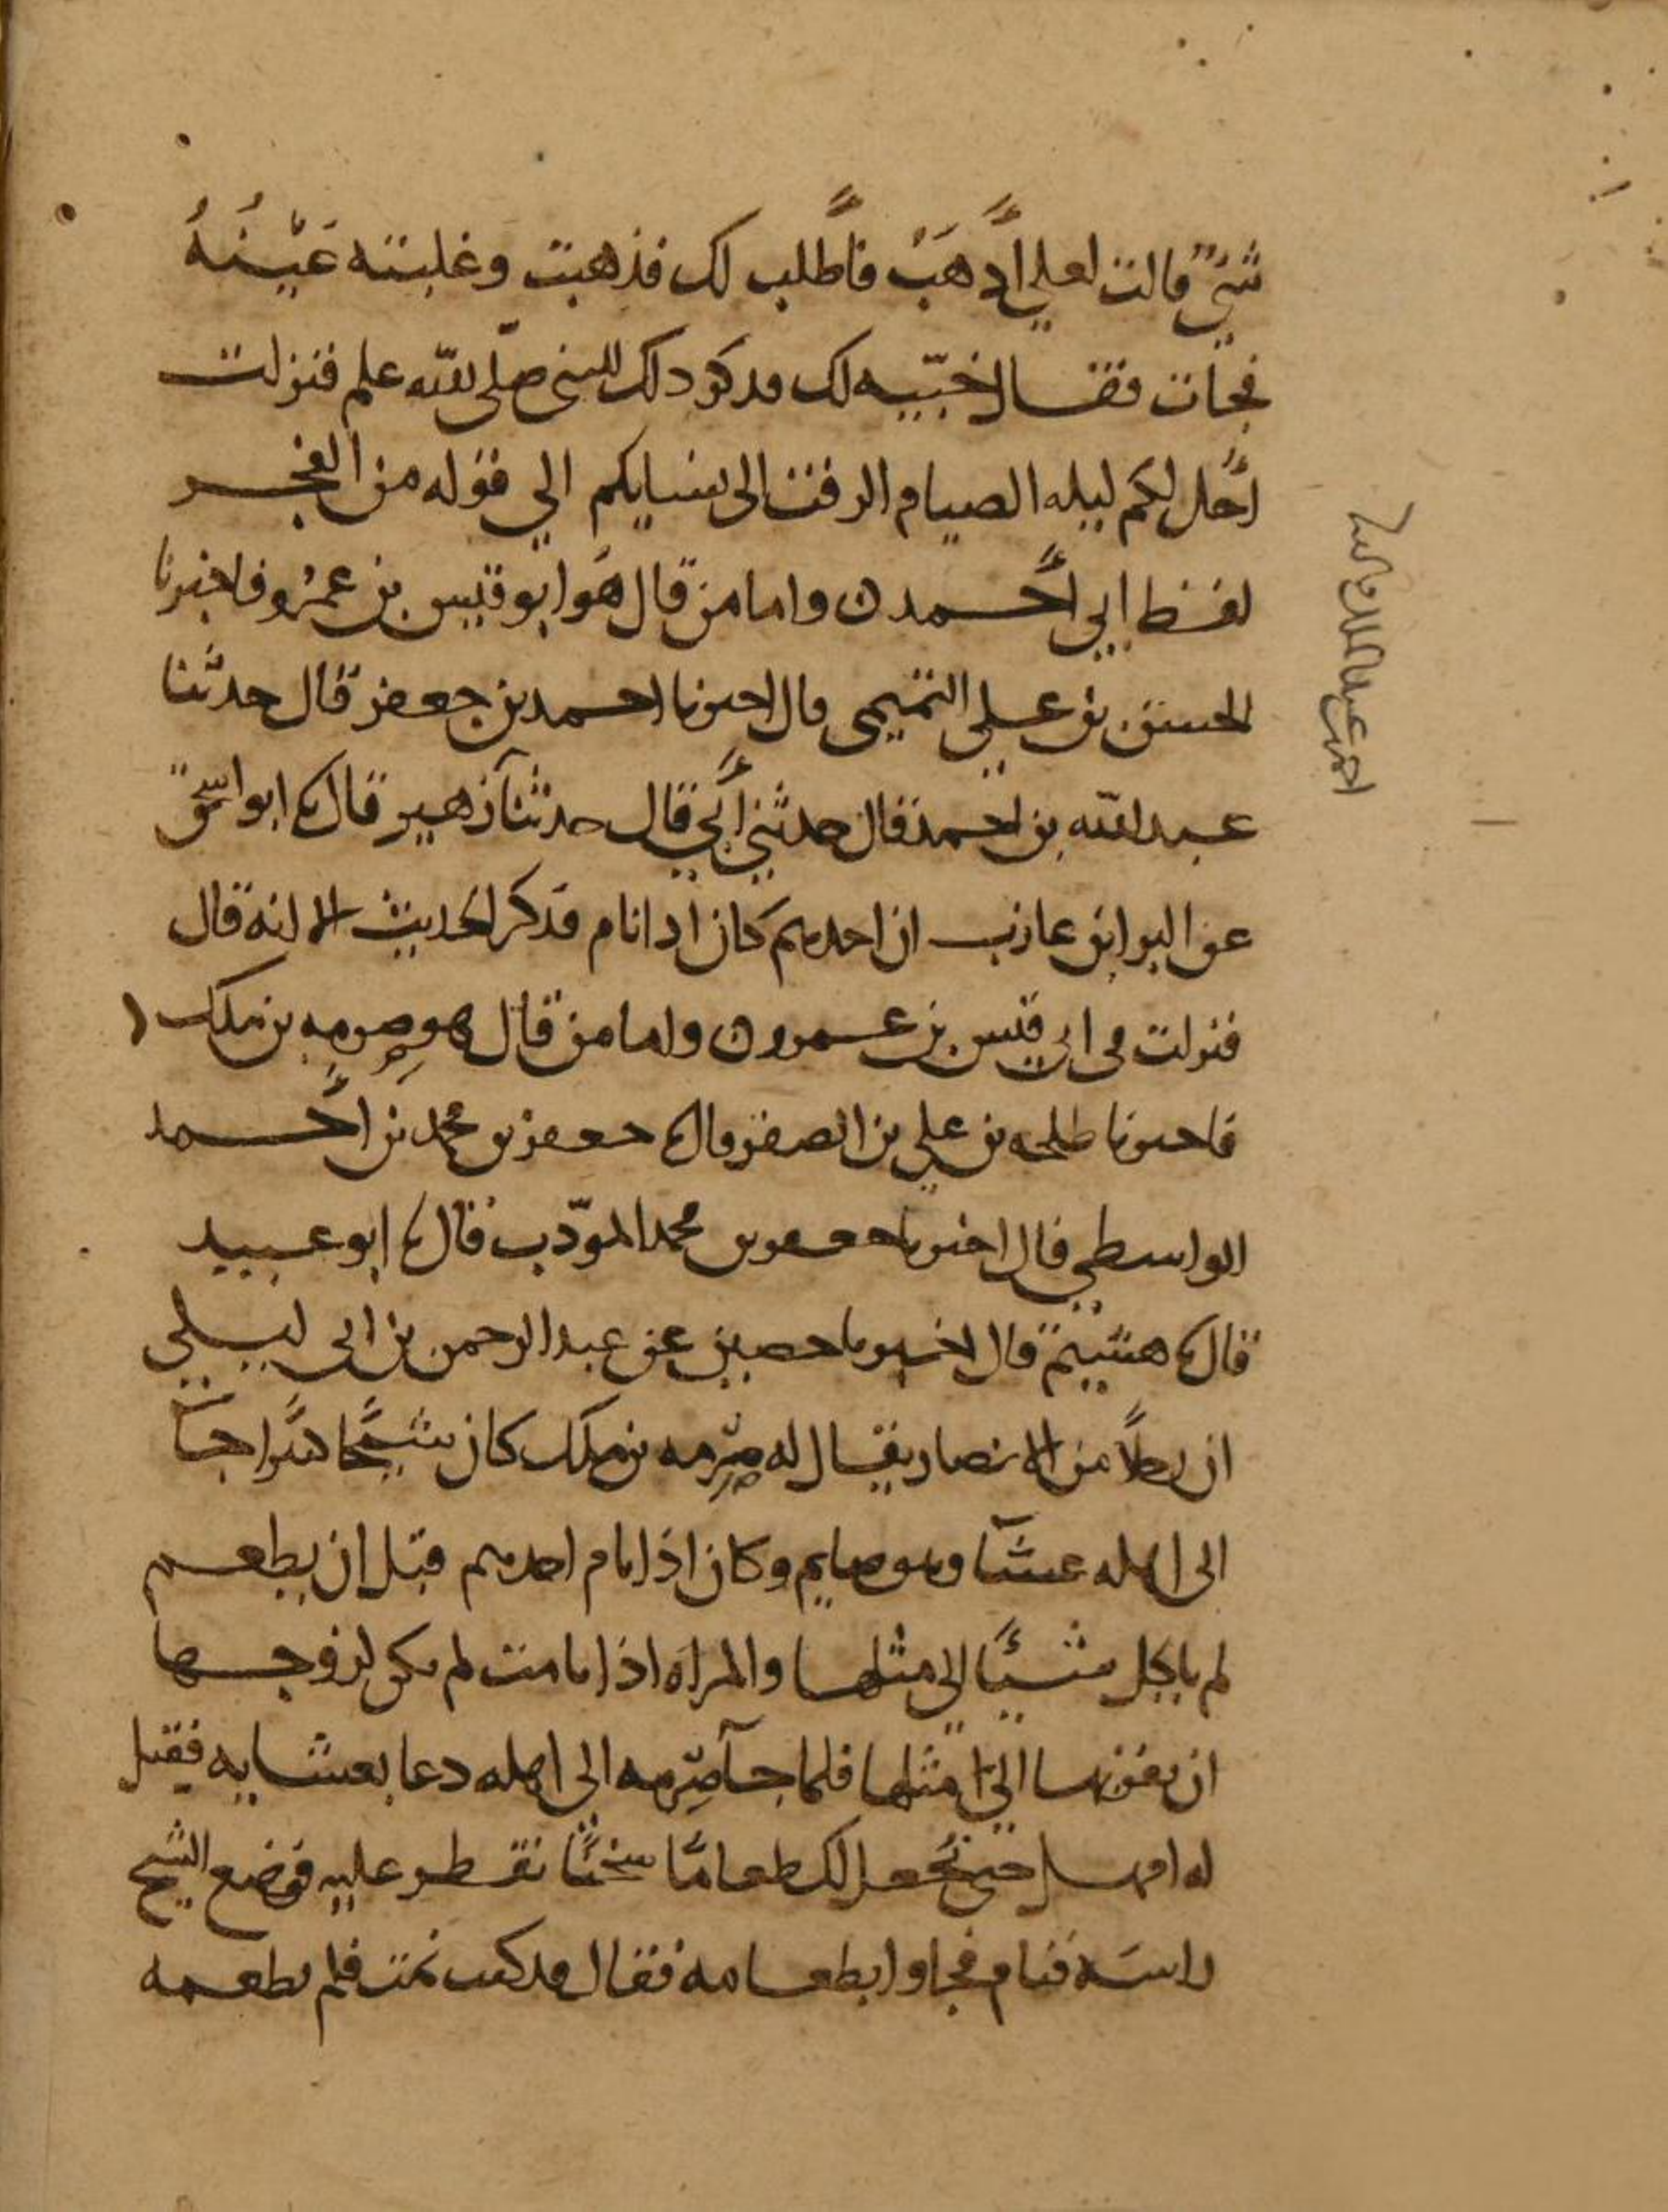 شيءٌ قالت لعلي أذهَبُ فأطلب لك فذهبت وغلبته عَيْنُهُ
فجات فقال خيبه لك فذكر ذلك للنبي صلّى الله علم فنزلت
أُحل لكم ليله الصيام الرفث الى نسايكم الي قوله من الفجر
لفظ ابي أحمد ن واما من قال هُو ابو قيس بن عمرُو فاخبرنا
الحسن بن علي التميمي قال اخبرنا احمد بن جعفر قال حدثنا
عبد الله بن احمد قال حدثني أبي قال حدثنا زهير قال ثنا ابو اسحق
عن البرا بن عازب ان احدهم كان اذا نام فذكر الحديث الا انه قال
فنزلت في ابي قيس بن عمرو ن واما من قال هو صِرمه بن ملك
فاخبرنا طلحه بن علي بن الصقر قال ثنا جعفر بن محمد بن أحمد
الواسطي قال اخبرنا جعفر بن محمد المؤدّب قال ثنا ابو عبيد
قال ثنا هشيم قال اخبرنا حصين عن عبد الرحمن بن ابي ليلي
ان رجلاً من الانصار يقال له صِرمه بن ملك كان شيخًا كبيرا جآ
الى اهله عشآ وهو صايم وكان اذا نام احدهم قبل ان يطعم
لم ياكل شيئًا الى مثلها والمراه اذا نامت لم يكن لزوجها
ان يقربها الي مثلها فلما جآ صِرمه الى اهله دعا بعشايه فقيل
له امهل حتي نجعل لك طعامًا سخنًا تفطر عليه فوضع الشيخ
راسَه فنام فجاوا بطعامه فقال قد كنت نمت فلم يطعمه